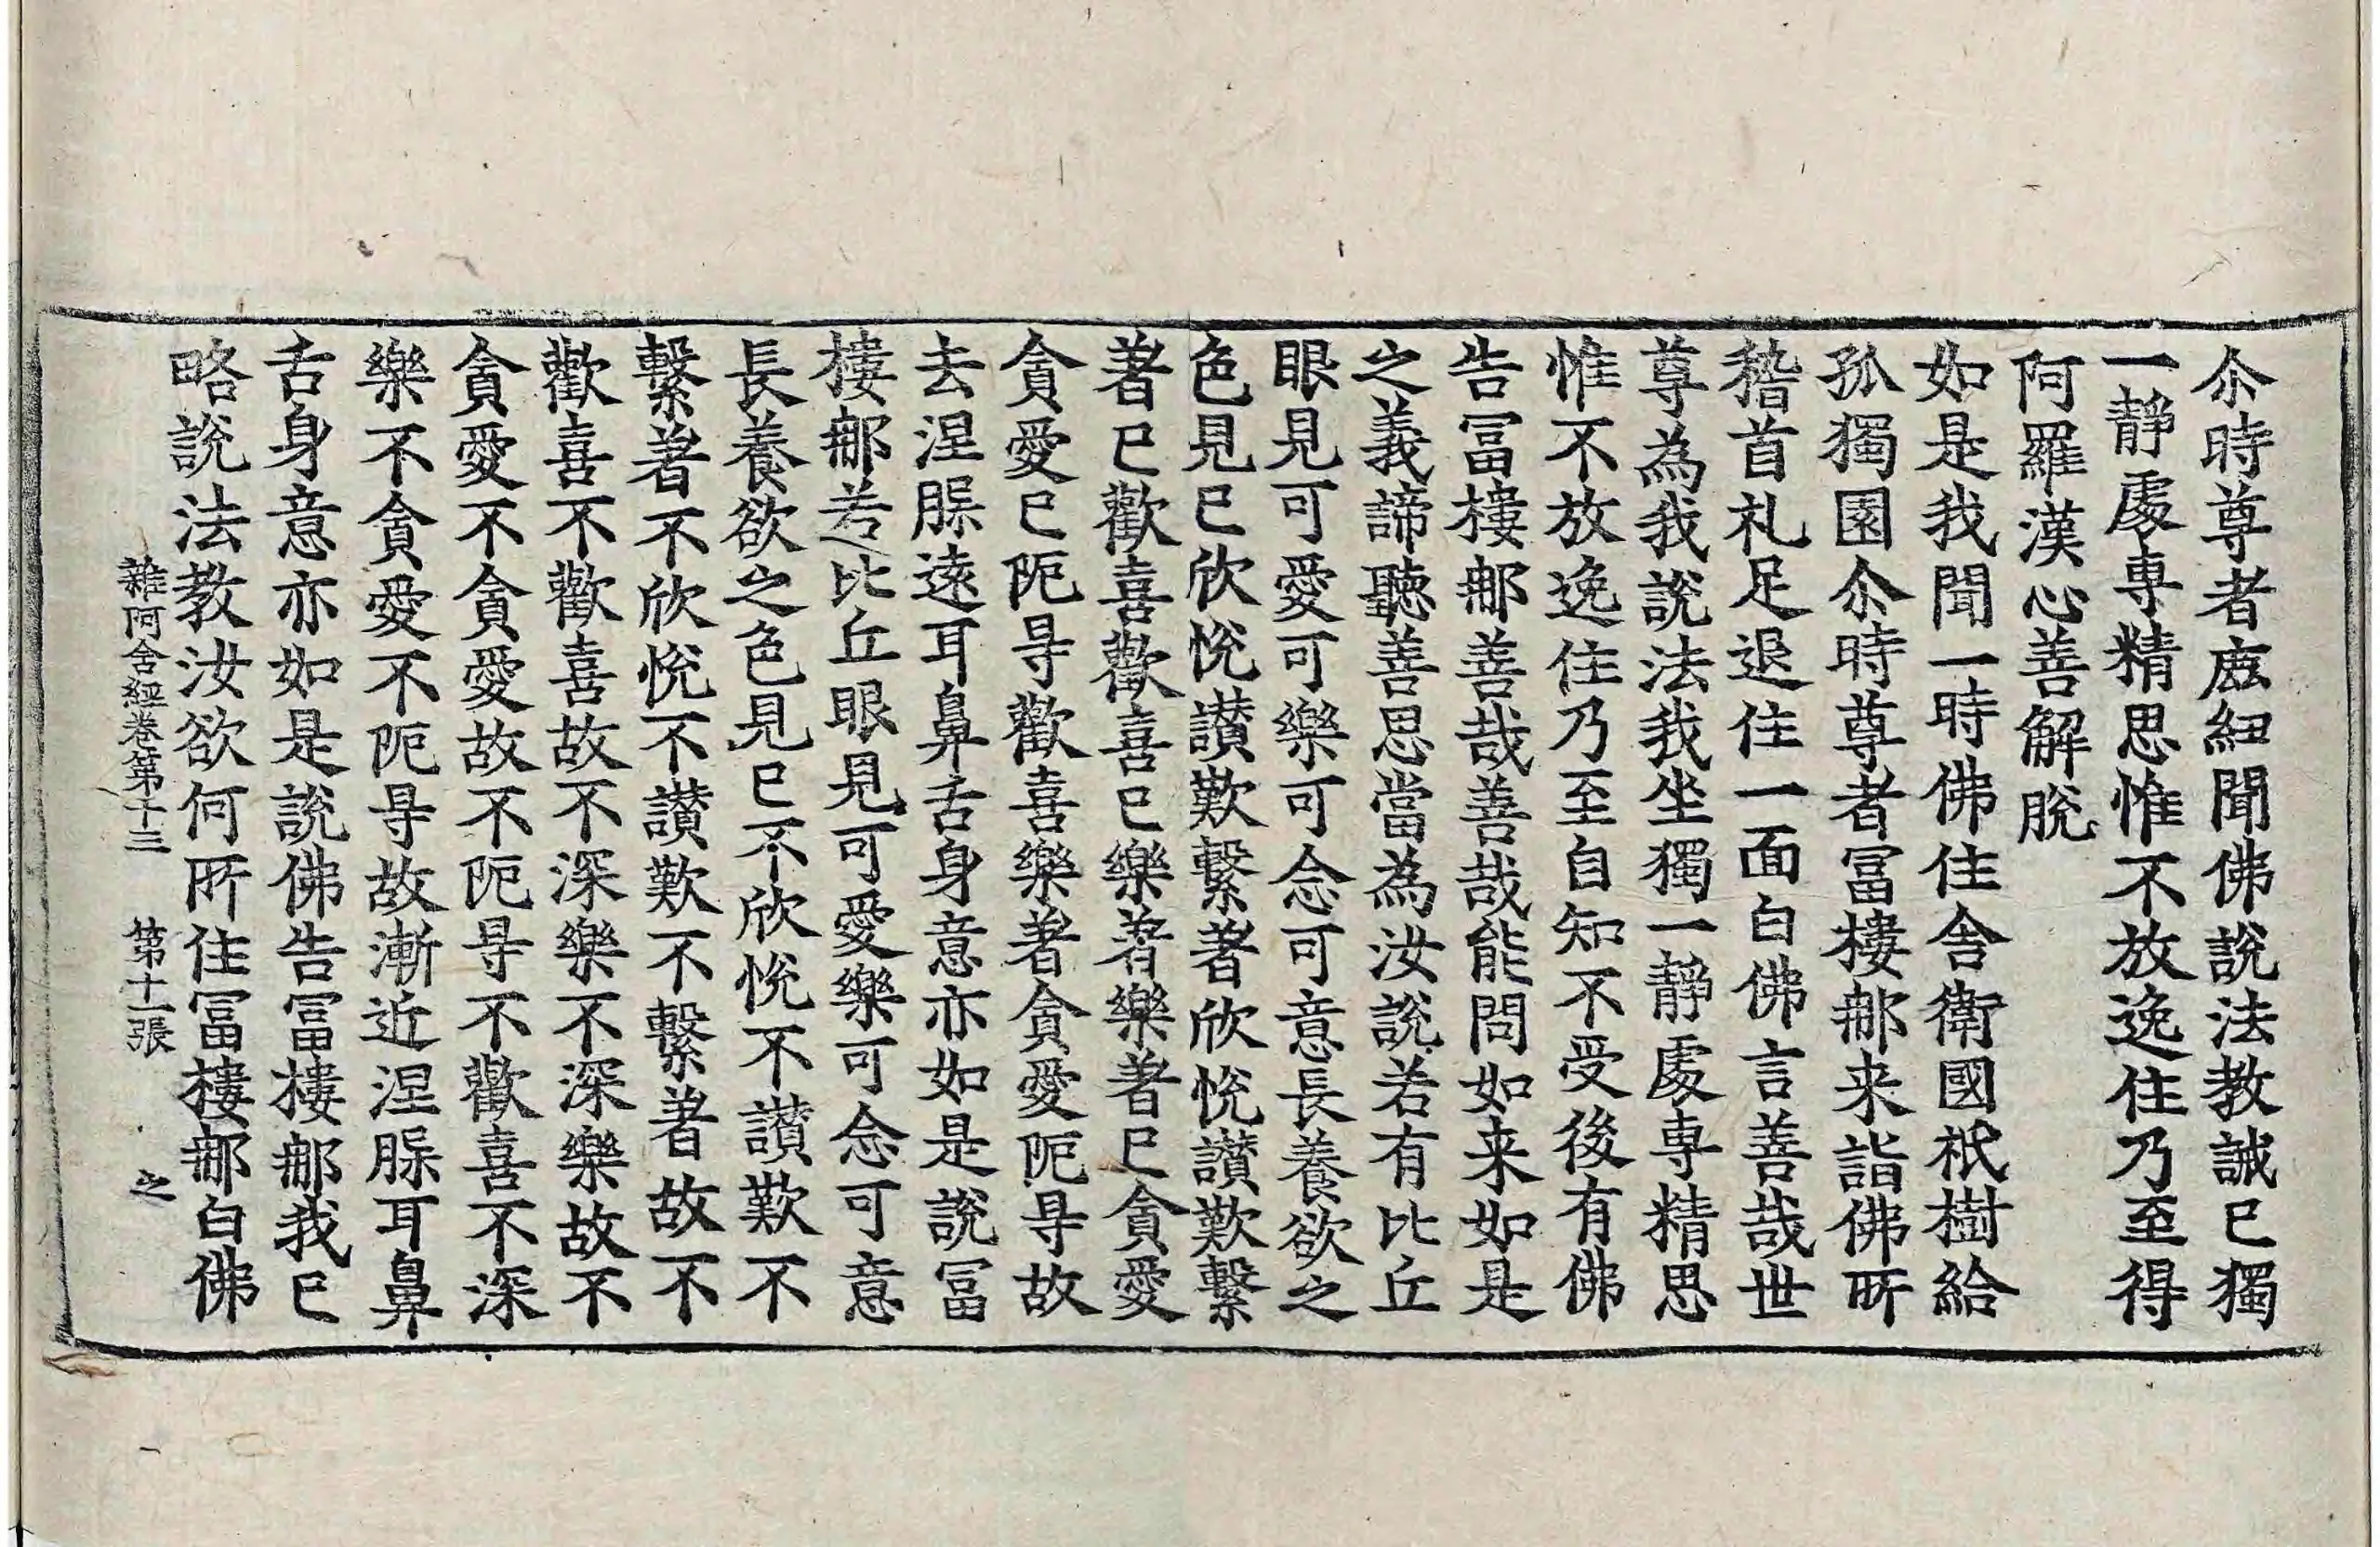 尒時尊者㢈紐聞佛說法教誡已獨
一靜處專精思惟不放逸住乃至得
阿羅漢心善解脫
如是我聞一時佛住舍衛國祇樹給
孤獨園尒時尊者冨樓那来詣佛所
稽首礼足退住一面白佛言善哉世
尊為我說法我坐獨一靜處專精思
惟不放逸住乃至自知不受後有佛
告冨樓那善哉善哉能問如来如是
之義諦聽善思當為汝說若有比丘
眼見可愛可樂可念可意長養欲之
色見已欣悅讚歎繫著欣悅讚歎繫
著已歡喜歡喜已樂著樂著已貪愛
貪愛已阨㝵歡喜樂著貪愛阨㝵故
去涅槃遠耳鼻舌身意亦如是說冨
樓那若比丘眼見可愛樂可念可意
長養欲之色見已不欣悅不讚歎不
繫著不欣悅不讚歎不繫著故不
歡喜不歡喜故不深樂不深樂故不
貪愛不貪愛故不阨㝵不歡喜不深
樂不貪愛不阨㝵故漸近涅槃耳鼻
舌身意亦如是說佛告冨樓那我已
略說法教汝欲何所住冨樓那白佛
雜阿含經卷第十三 第十一張 之